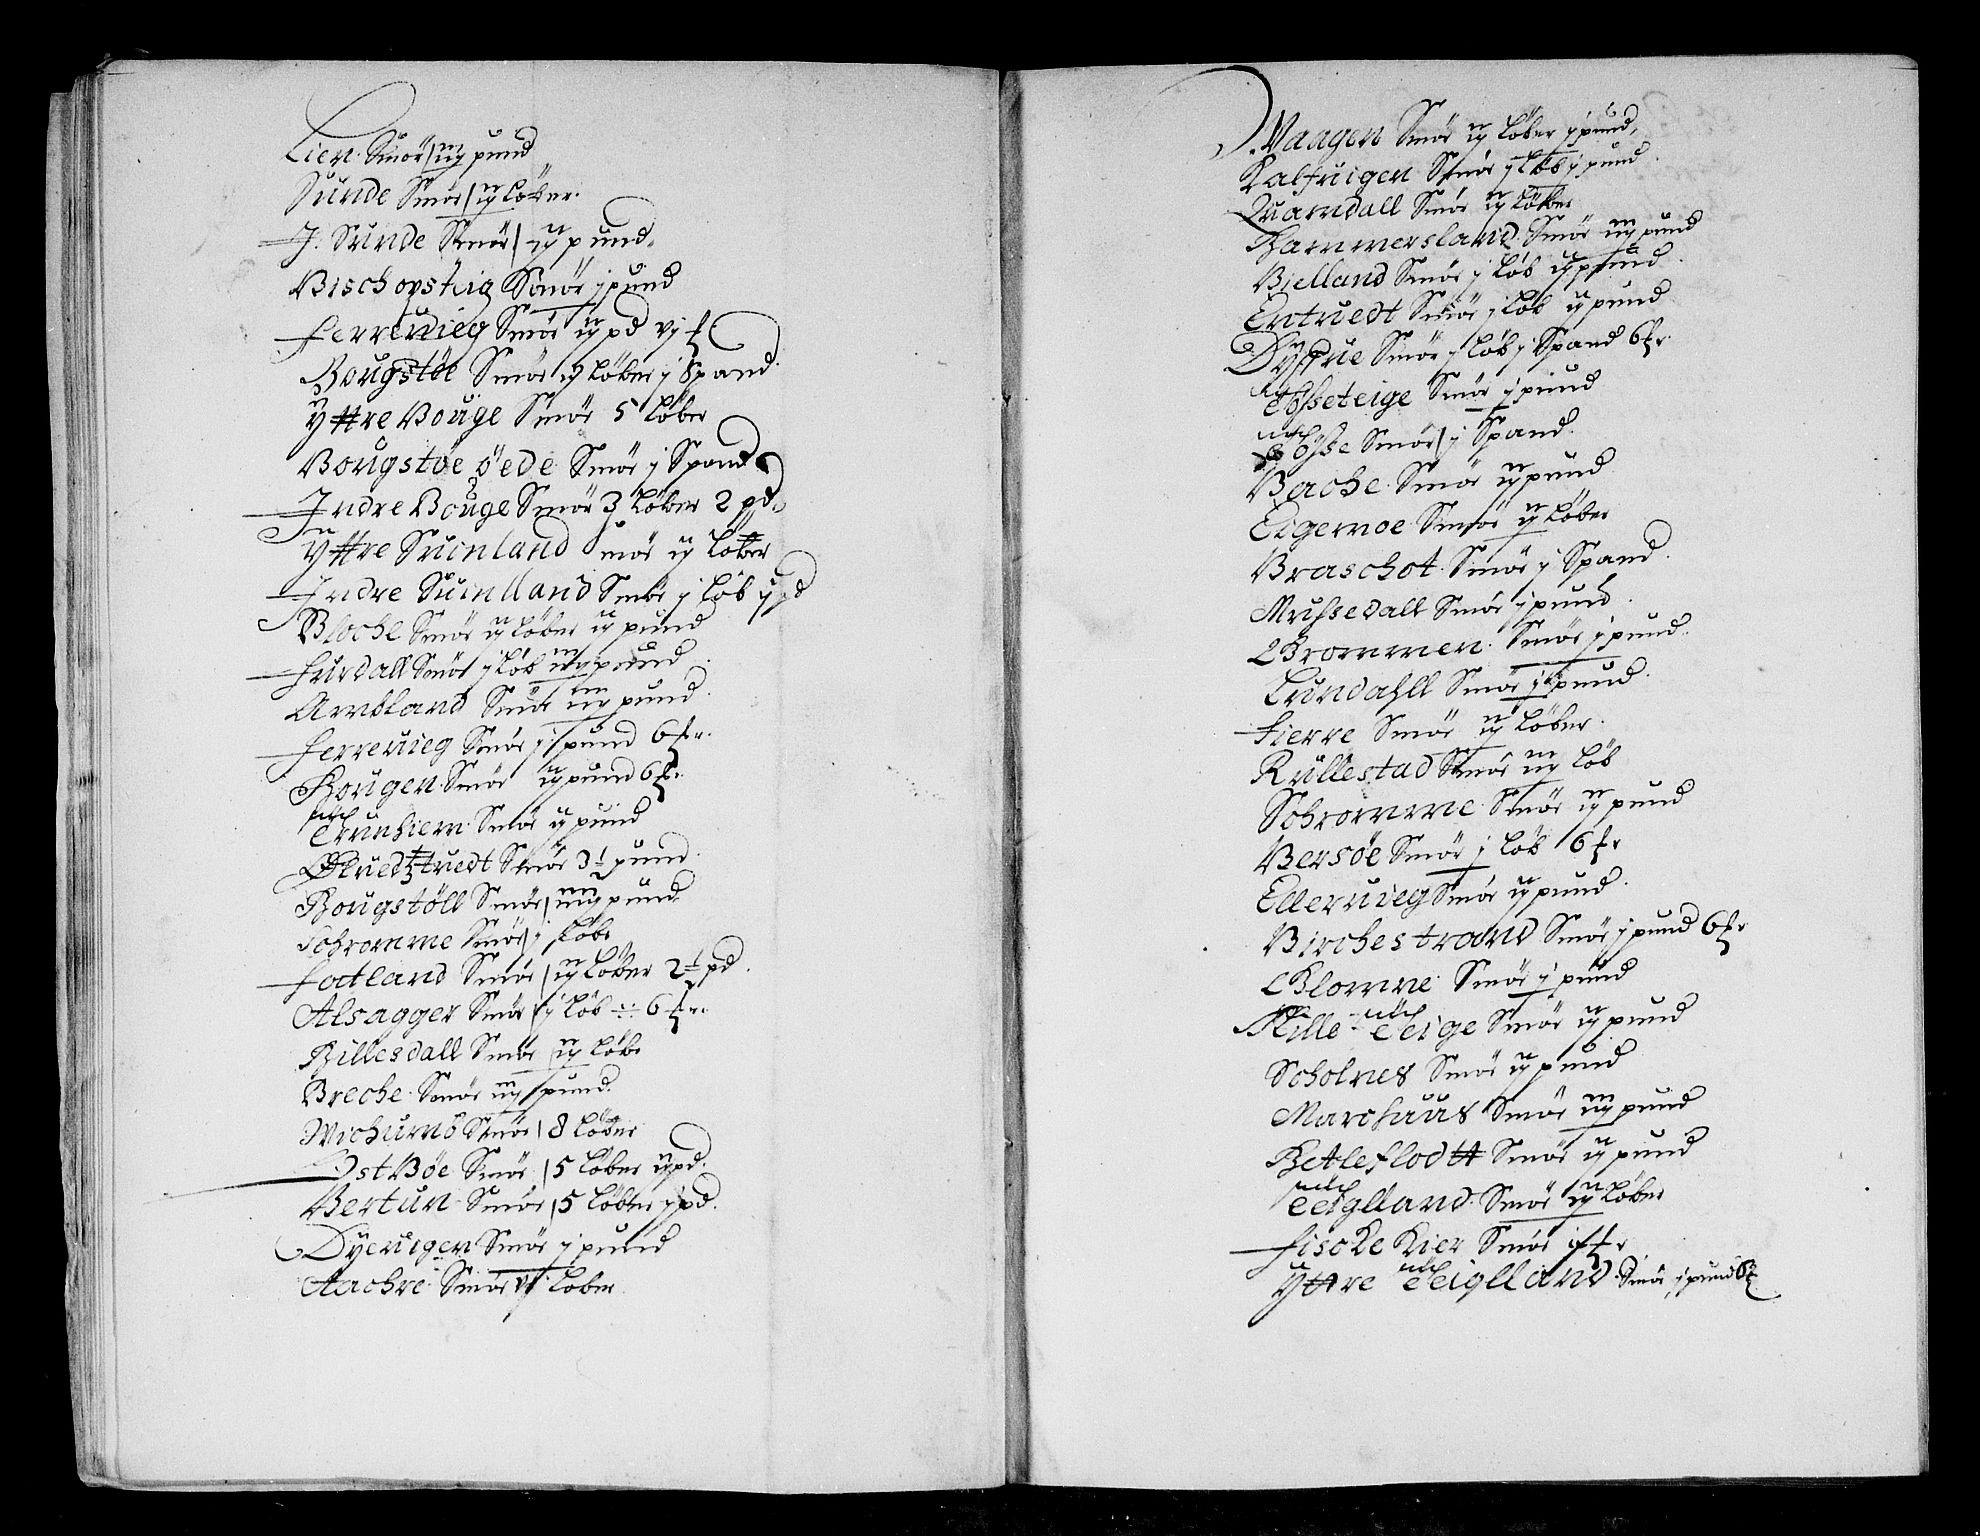 Lien Smör iij pund
Sunde Smör ij Löber.
J. Sunde Smör ij pund.
Bischopsteig Smör j pund
Ferreuieg Smör ij pd vj
Bougstöe Smör ij Löber j Spand
Yttre Bouge Smör 5 Löber
Bougstöe öede Smör j Spand
Indre Bouge Smör 3 Löber 2 pd.
Yttre Suinland Smör ij Löber
Indre Suinlland Smör j Löb j pd
Bloche Smör ij Löber ij pund
Furdall Smör j Löb iij pund
Ambland Smör iij pund
Ferreuieg Smör j pund 6
Hougen Smör ij pund 6
Trunhiem Smör ij pund
Smör 3½ pund
Bougstöll Smör iiij pund
Schromme Smör j Löb
Fatland Smör ij Löber 2½ pd.
Alsagger Smör j Löb 6
Hillesdall Smör ij Löb
Breche Smör iij pund.
Wichumb Smör 8 Löber
Ost Böe Smör 5 Löber ij pd.
Bertun Smör 5 Löber j pd.
Dyeruigen Smör j pund
Aachre Smör vj Löber
Waagen Smör ij Löber j pund,
Kalfuigen Smör j Löb j pund
Quamdall Smör ij Löber
Hammersland Smör iij pund
Bielland Smör j Löb ij pund
Entuedt Smör j Löb ij pund
Smör j Löb j Spand 6
Ossseteige Smör j pund
Smör j Spand.
Berche Smör ij pund
Eigemoe Smör ij Löber
Braschot Smör j Spand
Mussedall Smör j pund
Brommen Smör j pund
Lundahll Smör j pund
Fierre Smör ij Löber.
Rullestad Smör iij Löb
Schromme Smör ij pund
Bersöe Smör j Löb 6
Elleruieg Smör ij pund
Birchestrand Smör j pund 6
Blomme Smör j pund
Hille Teige Smör ij pund
Scholnes Smör ij pund
Marchuus Smör iij pund
Ketleflodtt Smör ij pund
Teiglland Smör ij Löber
Fische Kier Smör
Yttre Teiglland Smör j pund 6